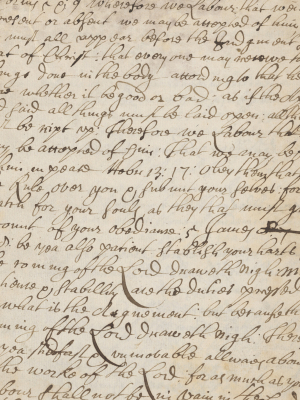 5: 9 wherefore we Labour that wee
present or absent we may be accepted of him
must all appear before the Judgment
seat of Christ: that every one may receive th
things done in the body according to that he
whether it be good or bad: as if the
had said all things must be laid open: all th
be ript up: Therefore we Labour that
be accepted of him: That we may be
him in peace Hebr 13: 17: Obey them that
Rule over you & submit your selves for
watch for your Souls, as they that must g
account of your obedience: 5 James
be yea also patient stablish your harts
the coming of the Lord draweth nigh
patience & stability are the duties pressed
what is the Argument: but because the
coming of the Lord draweth nigh. There
yea stedfast & unmovable allwaes abou
the worke of the Lord: for as much as yo
labour shall not be in vain in the Lord